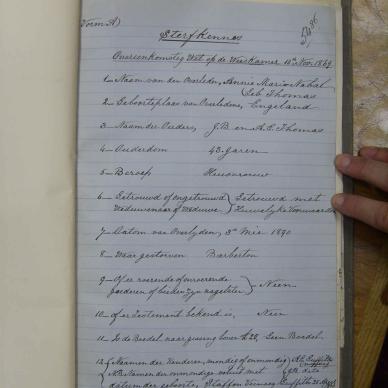 Form A)
Sterfkennis
Overeenkomstig Wet op de Weeskamer 12de Nov. 1869
1- Naam van den Overleden, Annie Maria Nahal
Geb Thomas
2- Geboorteplaats van Overledene, Engeland
3- Naam der Ouders, J.B. en A.E. Thomas
4- Ouderdom 43 Jaren
5- Beroep Huisvrouw
6- Getrouwd of ongetrouwd Getrouwd met
Weduwenaar of Weduwe Huwelijks Voorwaarden
7- Datum van Overlyden, 3de Mei 1890
8- Waar gestorven Barberton
9- Of er roerende of onroerende
goederen of beiden zyn nagelaten - Neen
10- of er Testament bekend is, Neen
11- Is de Boedel naar gissing boven £ 20, Geen Boedel
12- Namen der Kinderen, mondig of onmondig
N.B. Namen der onmondige voluit met
datum der geboorte,